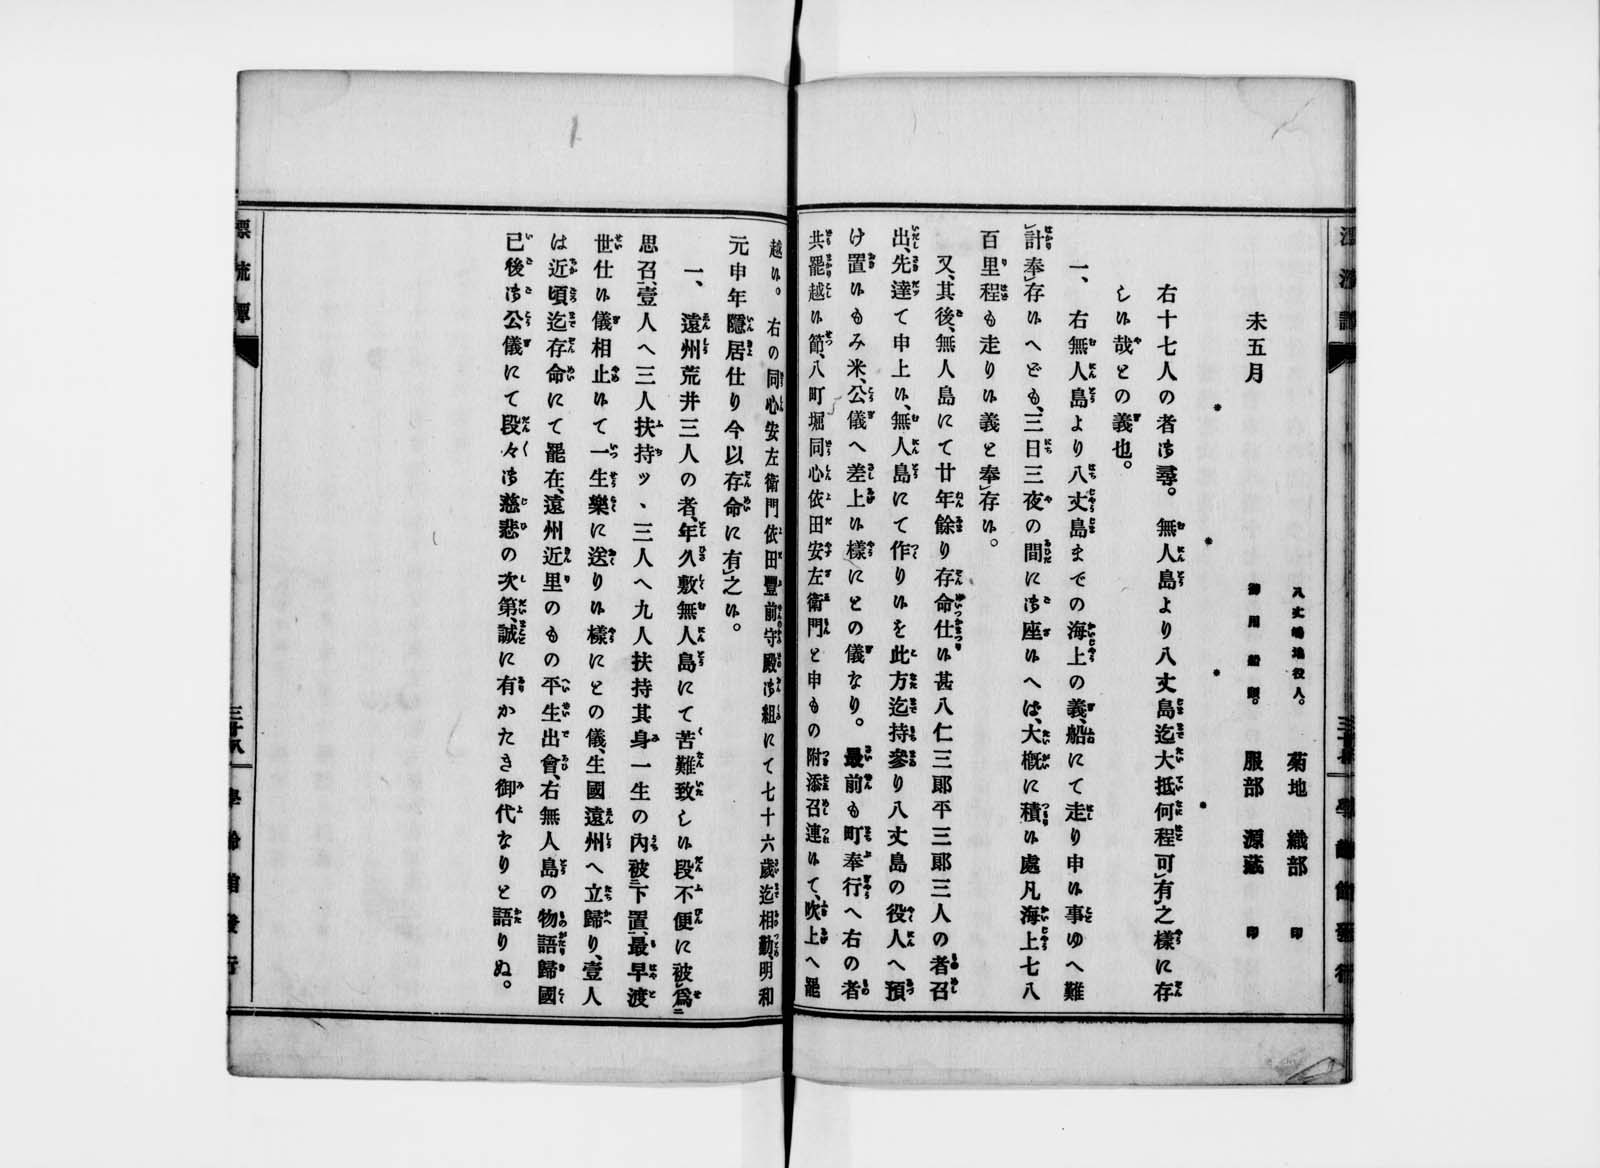 八丈嶋地役人。 菊地 織部 印
未五月 御用船頭。 服部 源藏 印
右十七人の者御尋。無人島より八丈島迄大抵何程可有之樣に存
しい哉との義也。
一、右無人島より八丈島までの海上の義、船にて走り申い事ゆへ難
計奉存いへども、三日三夜の間に御座いへは、大概に積い處凡海上七八
百里程も走りい義と奉存い。
又、其後、無人島にて廿年餘り存命仕い甚八仁三郎平三郎三人の者召
出、先達て申上い、無人島にて作りいを此方迄持參り八丈島の役人へ預
け置いもみ米、公儀へ差上い樣にとの儀なり。最前も町奉行へ右の者
共罷越い節、八町堀同心依田安左衞門と申もの附添召連いて、吹上へ罷
越い。右の同心安左衞門依田豐前守殿御組にて七十六歲迄相勤、明和
元申年隱居仕り今以存命に有之い。
一、遠州荒井三人の者、年久敷無人島にて苦難致しい段不便に被爲
思召、壹人へ三人扶持ツヽ三人へ九人扶持其身一生の內被下置、最早渡
世仕い儀相止いて一生樂に送りい樣にとの儀、生國遠州へ立歸り、壹人
は近頃迄存命にて罷在、遠州近里のもの平生出會、右無人島の物語歸國
已後御公儀にて段々御慈悲の次第、誠に有かたき御代なりと語りぬ。
漂流譚
三十八
學齢館發行